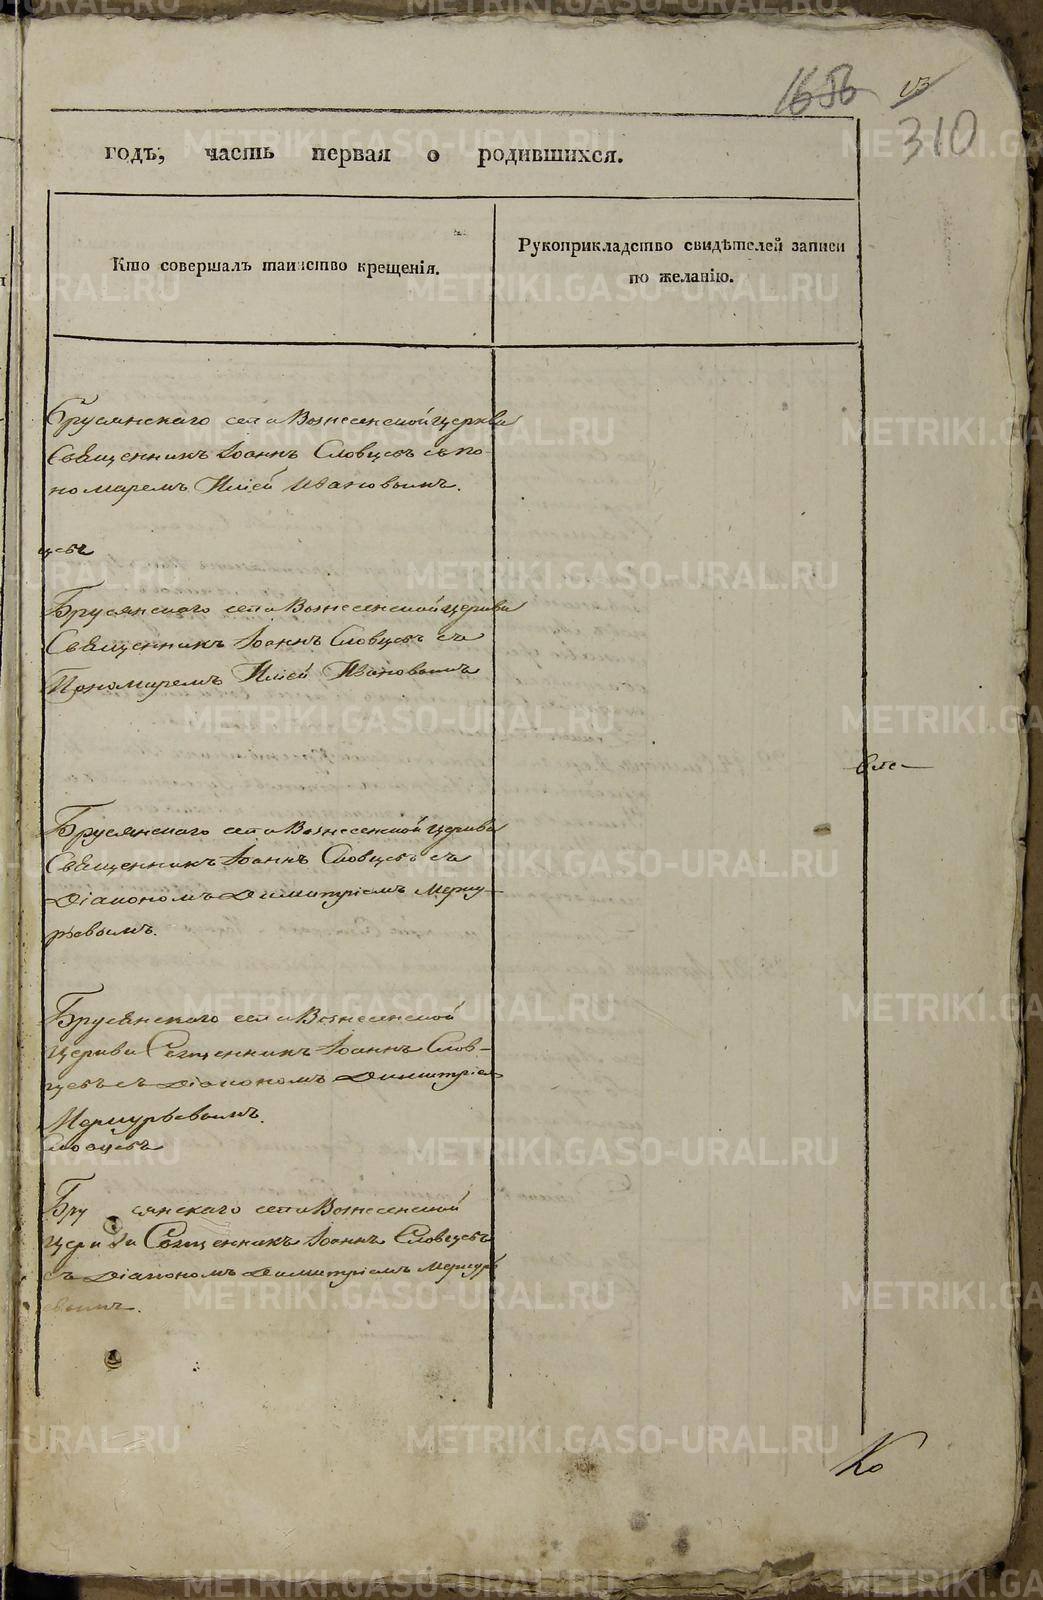 310
годъ, часть первая о родившихся.
Кто совершалъ таинство крещенія.
Рукоприкладство свидѣтелей записи
по желанію.
Брусянскаго села Вознесенской церкви
Священникъ Іоаннъ Словцовъ съ по-
номаремъ Иліей Ивановымъ.
цовъ
Брусянскаго села Вознесенской церкви
Священникъ Іоаннъ Словцовъ съ
Пономаремъ Иліей Ивановымъ
Брусянскаго села Вознесенской церкви
Священникъ Іоаннъ Словцовъ съ
Діакономъ Димитріемъ Мерку-
рьевымъ.
Брусянскаго села Вознесенской
Церкви Священникъ Іоаннъ Слов-
цовъ съ Діакономъ Димитріем
Меркурьевымъ.
Словцовъ
Брусянскаго села Вознесенской
Церкви Священникъ Іоаннъ Словцовъ
съ Діакономъ Димитріемъ Меркурь
евымъ.
METRIKI.GASO-URAL.RU